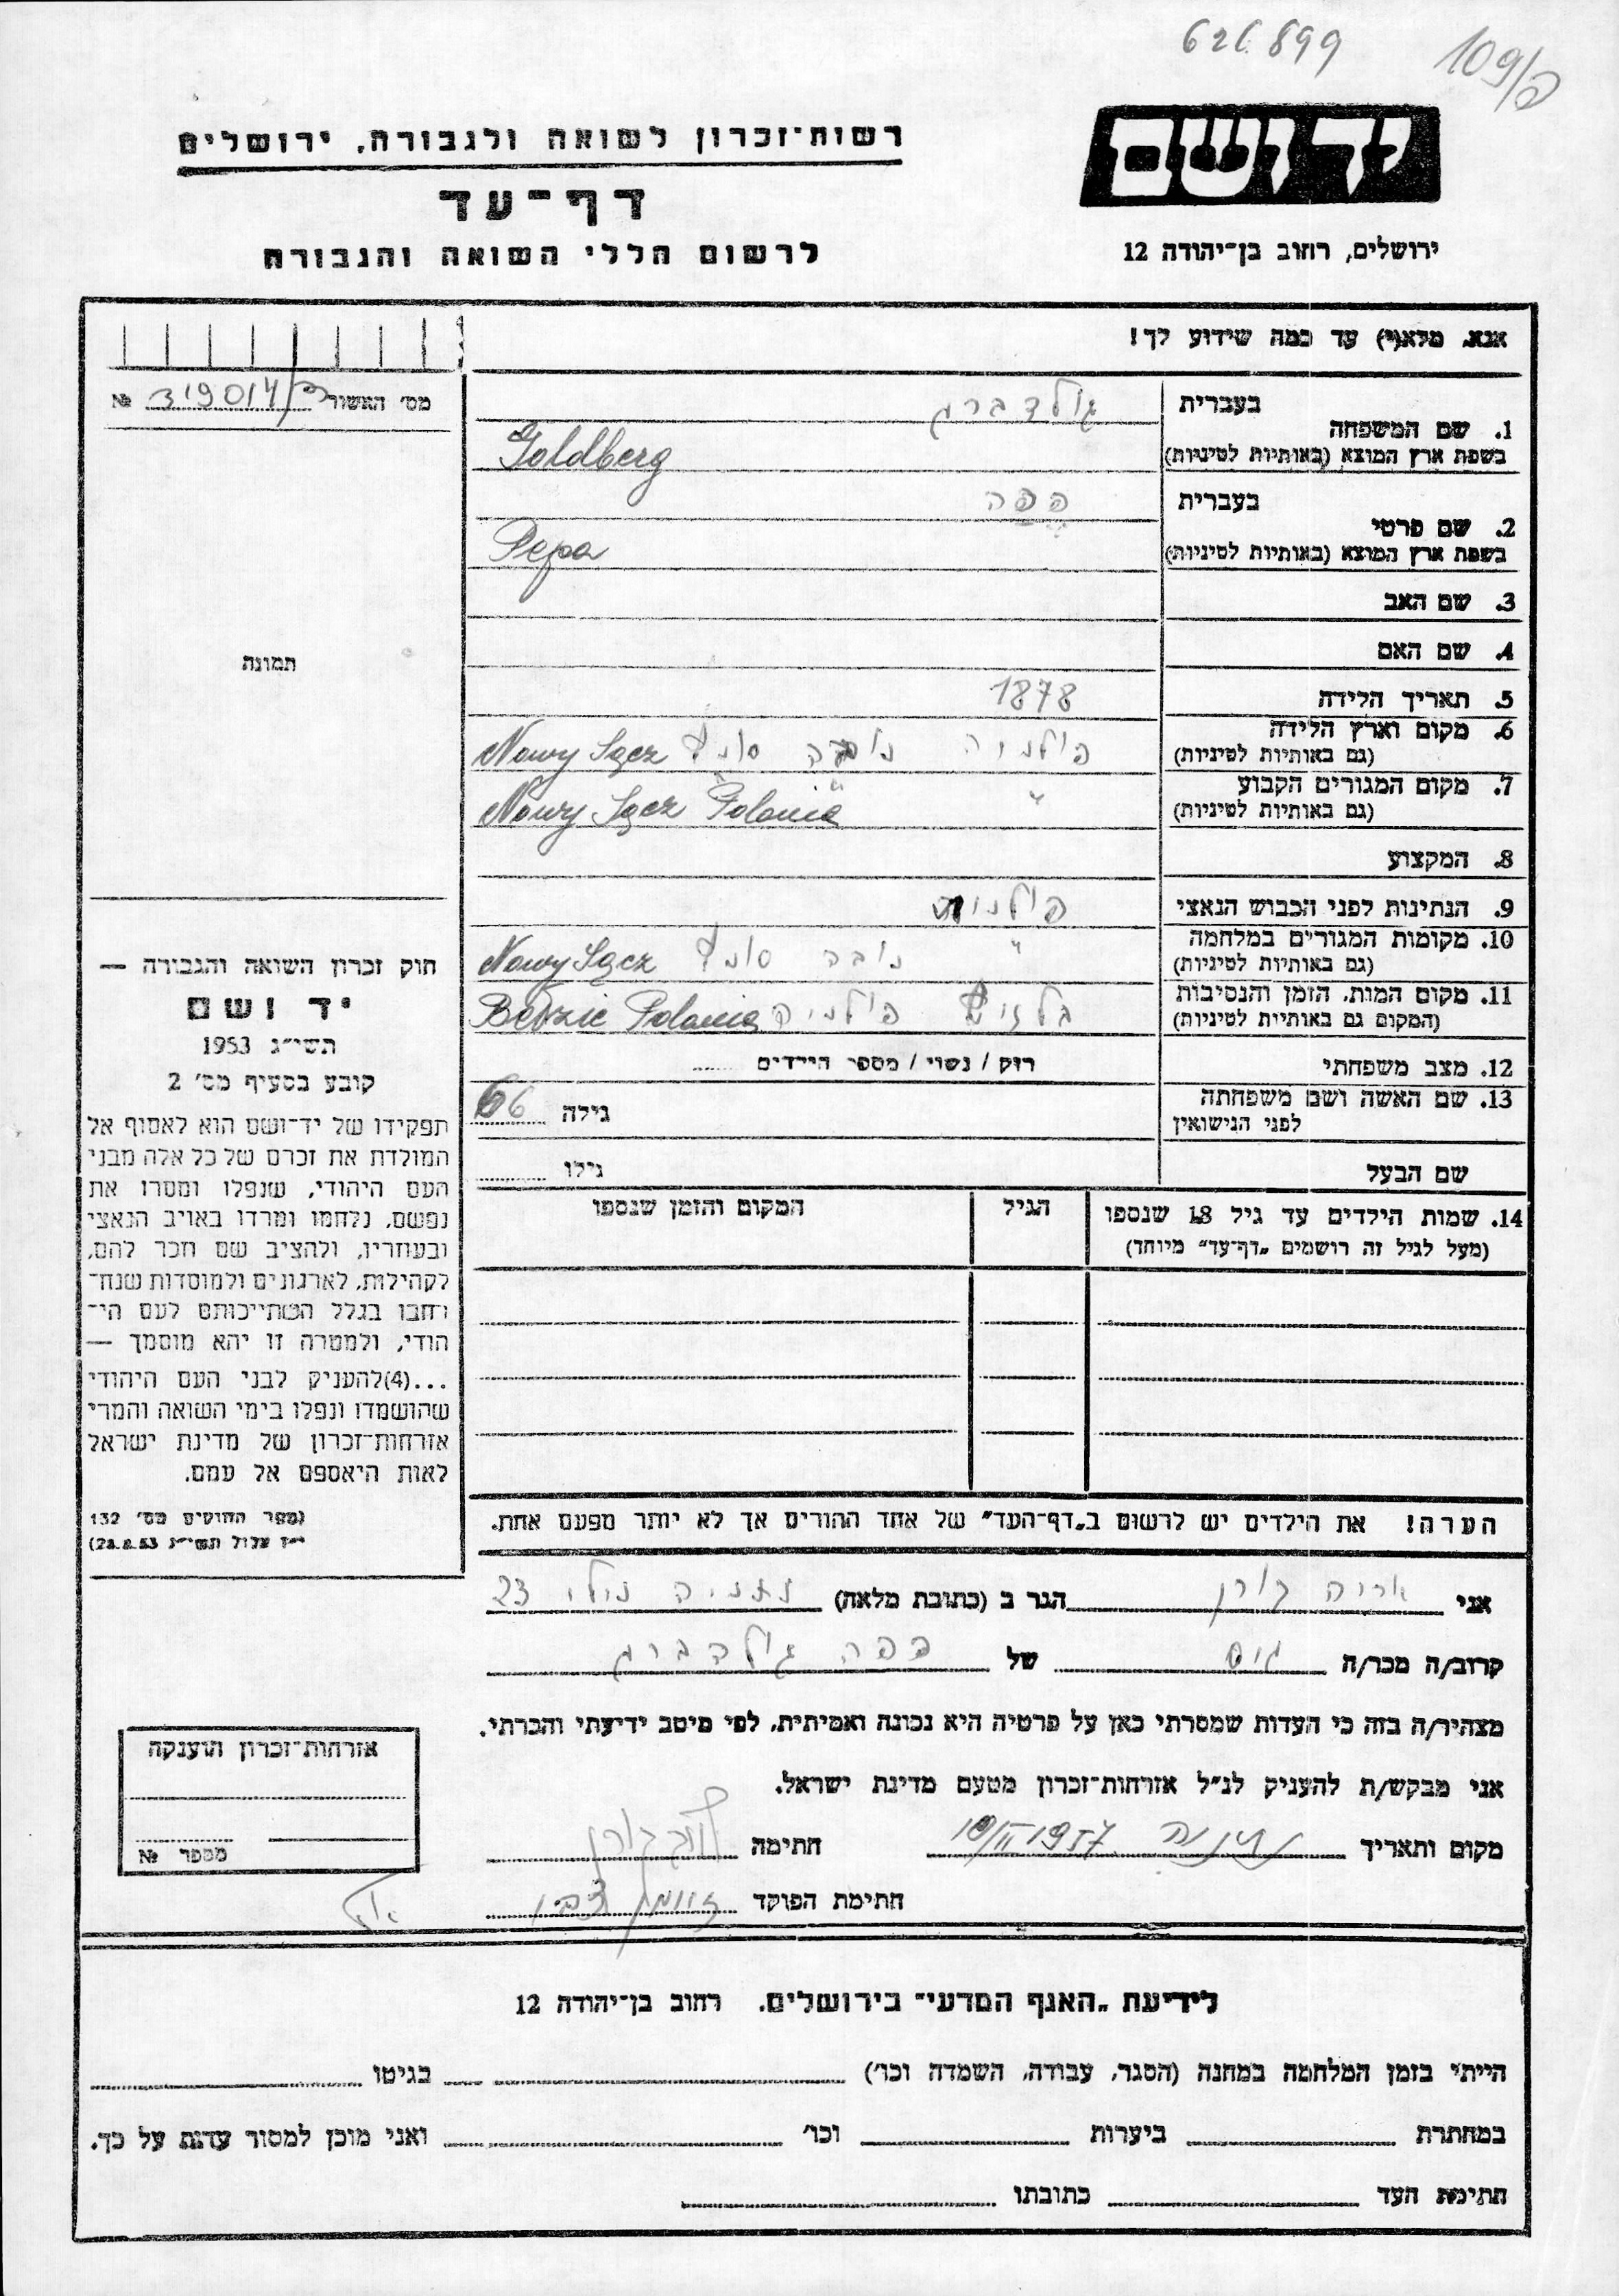 626899
109/פ
יד ושם
רשות־זכרון לשואה ולגבורה, ירושלים
דף־עד
לרשום חללי השואה והגבורה
ירושלים, רחוב בן־יהודה 12
אנא, מלא(י) עד כמה שידוע לך!
מס׳ האשור 319014/פ №
בעברית גולדברג
1. שם המשפחה
בשפת ארץ המוצא (באותיות לטיניות) Goldberg
בעברית פפה
2. שם פרטי
בשפת ארץ המוצא (באותיות לטיניות) Pepa
3. שם האב
4. שם האם
תמונה
5. תאריך הלידה 1878
6. מקום וארץ הלידה
(גם באותיות לטיניות) פולניה נובה סונץ Nowy Sącz
7. מקום המגורים הקבוע
(גם באותיות לטיניות) " " Nowy Sącz Polonia
8. המקצוע
9. הנתינות לפני הכבוש הנאצי פולנית
10. מקומות המגורים במלחמה
(גם באותיות לטיניות) " נובה סונץ Nowy Sącz
11. מקום המות, הזמן והנסיבות
(המקום גם באותיות לטיניות) בלזיץ פולניה Bełzic Polonia
12. מצב משפחתי רוק / נשוי / מספר הילדים
13. שם האשה ושם משפחתה
לפני הנישואין גילה 66
שם הבעל גילו
14. שמות הילדים עד גיל 18 שנספו
(מעל לגיל זה רושמים „דף־עד״ מיוחד)
הגיל
המקום והזמן שנספו
חוק זכרון השואה והגבורה —
יד ושם
תשי״ג 1953
קובע בסעיף מס׳ 2
תפקידו של יד־ושם הוא לאסוף אל
המולדת את זכרם של כל אלה מבני
העם היהודי, שנפלו ומסרו את
נפשם, נלחמו ומרדו באויב הנאצי
ובעוזריו, ולהציב שם וזכר להם,
לקהילות, לארגונים ולמוסדות שנח־
רחבו בגלל השתייכותם לעם הי־
הודי, ולמטרה זו יהא מוסמך —
...(4)להעניק לבני העם היהודי
שהושמדו ונפלו בימי השואה והמרי
אזרחות־זכרון של מדינת ישראל
לאות היאספם אל עמם.
(ספר החוקים מס׳ 132
י״ז אלול תשי״ג 28.8.53)
הערה! את הילדים יש לרשום ב„דף־העד״ של אחד ההורים אך לא יותר מפעם אחת.
אני אריה קורן הגר ב (כתובת מלאה) נתניה נילי 23
קרוב/ה מכר/ה גיס של פפה גולדברג
מצהיר/ה בזה כי העדות שמסרתי כאן על פרטיה היא נכונה ואמיתית, לפי מיטב ידיעתי והכרתי.
אני מבקש/ת להעניק לנ״ל אזרחות־זכרון מטעם מדינת ישראל.
מקום ותאריך נתניה 10/II 1957 חתימה
חתימת הפוקד
אזרחות־זכרון הוענקה
מספר №
לידיעת „האגף המדעי״ בירושלים. רחוב בן־יהודה 12
הייתי בזמן המלחמה במחנה (הסגר, עבודה, השמדה וכו׳) בגיטו
במחתרת ביערות וכו׳ ואני מוכן למסור עדות על כך.
חתימת העד כתובתו